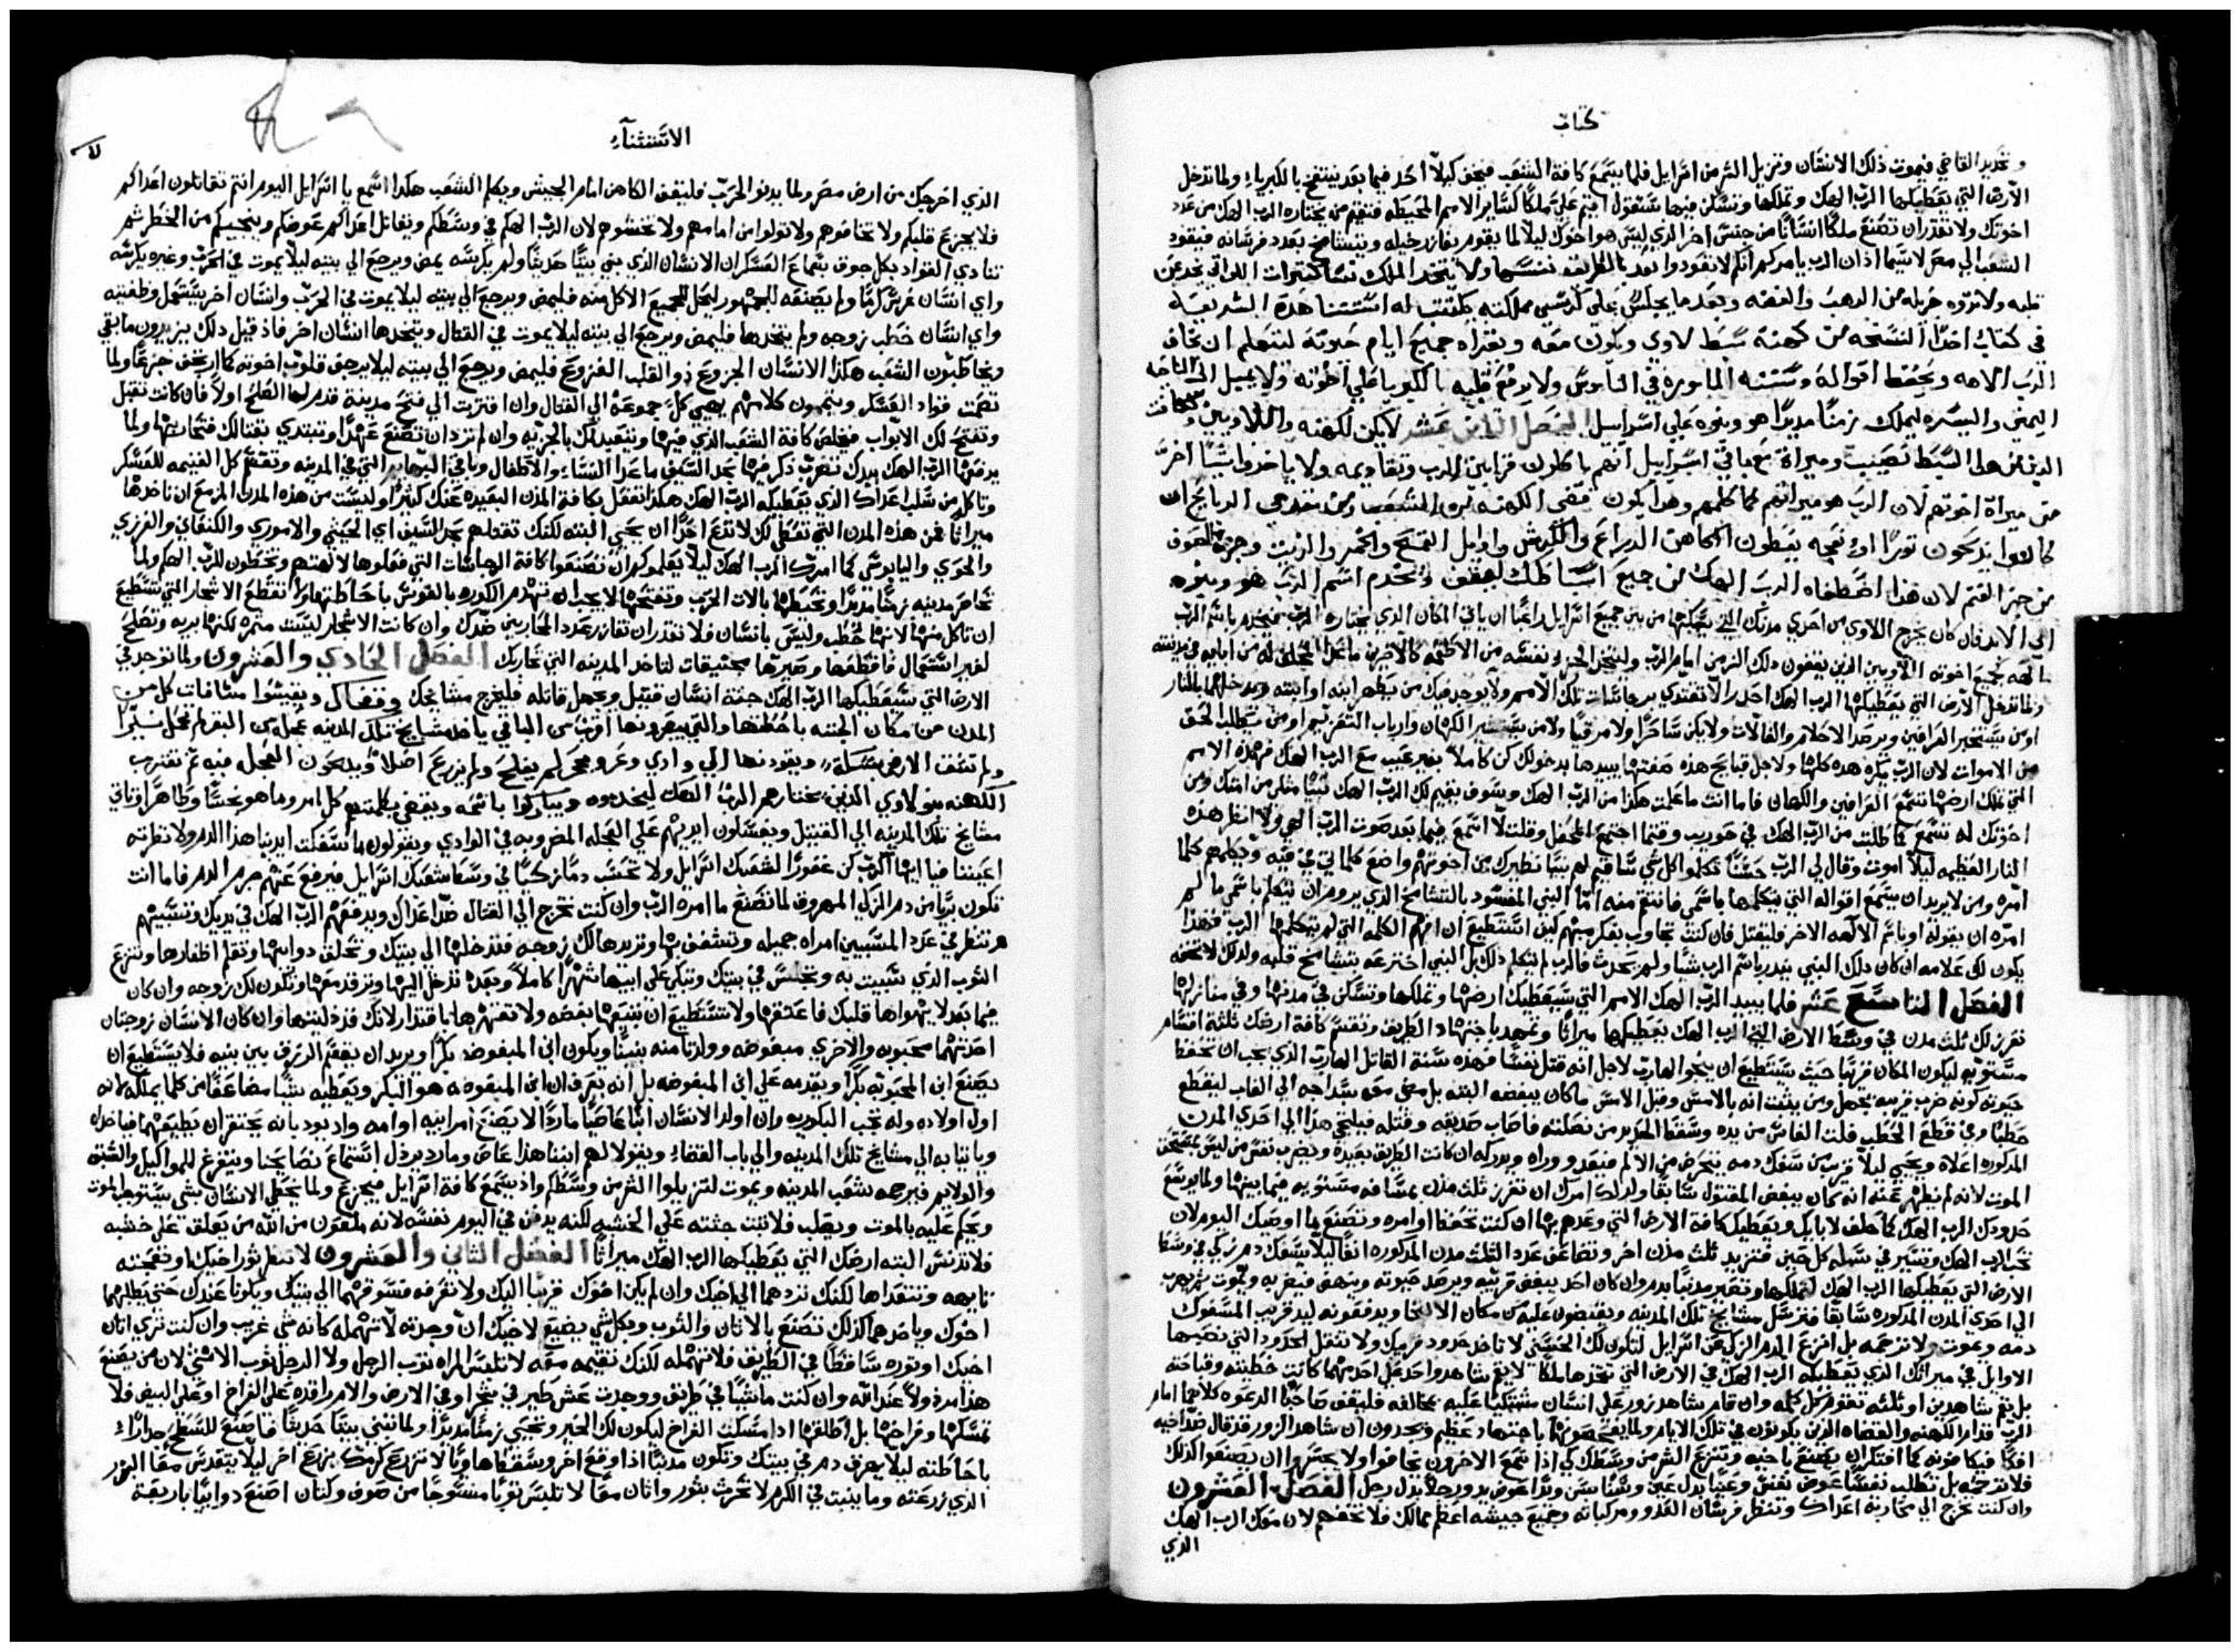 كتاب
وتحديد القاضي فيموت ذلك الانسان وتزيل الشر من اسرايل فلما يستمع كافة الشعب فيخف كيلا احد فيما بعد ينتفخ بالكبرياء ولما تدخل
الارض التي يعطيكها الرب الهك وتملكها وتسكن فيها ستقول اقيم علي ملكا كساير الامم المحيطه فتقيم من يختاره الرب الهك من عدد
اخوتك ولا تقدر ان تصنع ملكا انسانا من جنس اخر الذي ليس هو اخوك ليلا لما يقوم بغازر خيله وبعدد فرسانه فيقود
الشعب الي مصر لا سيما اذ ان الرب يامركم انكم لا تعودوا بعد بالطريقه نفسها ولا يتخذ الملك نسا كثيرات اللواتي يخدعن
قلبه ولا تزوه جزيله من الذهب والفضه وبعد ما يجلس علي كرسي مملكته يكتتب له استثنا هذه الشريعه
في كتاب اخذا النسخه من كهنة سبط لاوي ويكون معه ويقراه جميع ايام حيوته ليتعلم ان يخاف
الرب الاهه ويحفظ اقواله وسننه المامورة في الناموس ولا يرفع قلبه بالكبريا علي اخوته ولا يميل الي الناحيه
اليمني واليسره ليملك زمنا مديدا هو وبنوه علي اسراسل الفصل الثامن عشر لا يكن للكهنه واللاويين وكافة
الذين من هذا السبط نصيب وميراة مع باقي اسراييل انهم ياكلون قرابين الرب وتقاديمه ولا ياخدوا شيا اخر
من ميراة اخوتهم لان الرب هو ميراثهم كما كلمهم وهذا يكون قضي الكهنه من الشعب ومن مقدمي الدبايح ان
كانوا يذبحون ثورا او نعجه يعطون الكاهن الدراع والكرش واوايل القمح والخمر والزيت وجزو الصوف
من جز الغنم لان هذا اصطفاه الرب الهك من جميع اسباطك ليقف ويخدم اسم الرب هو وبنوه
الي الابد فان كان يخرج اللاوي من احدي مدنك التي يسكنها من بين جميع اسرايل راغبا ان ياتي المكان الذي يختاره الرب فيخدم باسم الرب
الهه كجميع اخوته اللاويين الذين يقفون ذلك الزمن امام الرب ولينخل الجزء نفسه من الاطعمه كالاخرين ماعدا المخلف له من ابايه في مدينته
ولما تدخل الارض التي يعطيكها الرب الهك احذر الا تقتدي برجاسات تلك الامم ولا يوجد فيك من يطهر ابنه او ابنته ويدخلهما بالنار
او من يستخبر العرافين ويرصد الاحلام والفالات ولا يكن ساحرا ولا مرقيا ولا من يستشير الكهان وارباب التعزيم او من يطلب الحق
من الاموات لان الرب يكره هذه كلها ولاجل قبايح هذه صفتها يبيدها بدخولك كن كاملا بغير عيب مع الرب الهك فهذه الامم
التي تملك ارضها تستمع العرافين والكهان فاما انت ما علمت هكذا من الرب الهك وسوف يقيم لك الرب الهك نبيا مثلي من امتك ومن
اخوتك له تسمع كما طلبت من الرب الهك في حوريب وقتما اجتمع المحفل وقلت لا اسمع فيما بعد صوت الرب الهي ولا انظر هذه
النار العظيمه ليلا اموت وقال لي الرب حسنا تكلموا كل شي ساقيم لهم نبيا نظيرك من اخوتهم واضع كلماتي في فيه ويكلمهم كلما
امره ومن لا يريد ان يستمع اقواله التي يتكلمها باسمي فانتقم منه اما النبي المفسود بالتشامخ الذي يروم ان يتكلم باسمي ما لم
امره ان يقوله او باسم الالهه الاخر فليقتل فان كنت تجاوب بفكر مبهم كيف استطيع ان افهم الكلمه التي لم يتكلمها الرب فهذا
يكون لك علامه ان كان ذلك النبي ينذر باسم الرب شيا ولم يحدث فالرب لم يتكلم ذلك بل النبي اخترعه بتشامخ قلبه ولذلك لا تخفه
الفصل التاسع عشر فلما يبيد الرب الهك الامم التي سيعطيك ارضها وتملكها وتسكن في مدنها وفي منازلها
تفرز لك ثلث مدن في وسط الارض التي الرب الهك يعطيكها ميراثا وتمهد باجتهاد الطريق وتقسم كافة ارضك ثلثة اقسام
مستويه ليكون المكان قريبا حيث يستطيع ان ينجو الهارب لاجل انه قتل نفسا فهذه سنة القاتل الهارب الذي يجب ان تحفظ
حيوته كونه ضرب قريبه بجهل ومن يثبت انه بالامس وقبل الامس ما كان يبغضه البته بل مضي معه بسداجه الي الغاب ليقطع
حطبا وفي قطع الحطب فلت الفاس من يده وسقط الحديد من نصلته فاصاب صديقه وقتله فيلتجي هذا الي احدي المدن
المذكوره اعلاه ويحيي ليلا قريب من سفك دمه يتحرض من الالم فيعدو وراه ويدركه ان كانت الطريق بعيده ويضرب نفس من ليس يستحق
الموت لانه لم يظهر عنه انه كان يبغض المقتول سابقا ولذلك امرك ان تفرز ثلث مدن بمسافه مستويه فيما بينها ولما يوسع
حدودك الرب الهك كما حلف لابايك ويعطيك كافة الارض التي وعدهم بها ان كنت تحفظ اوامره وتصنع ما اوصيك اليوم لان
تحب الرب الهك وتسير في سبله كل حين فتزيد ثلث مدن اخر وتضاعف عدد الثلث مدن المذكوره انفا ليلا يسفك دم زكي في وسط
الارض التي يعطيكها الرب الهك لتملكها وتصير مدنبا بدم وان كان احد يبغض قريبه ويرصد حيوته وينهض فيضربه ويموت ثم يهرب
الي احدي المدن المذكوره سابقا فترسل مشايخ تلك المدينه ويقبضون عليه من مكان الالتجا ويدفعونه ليد قريب المسفوك
دمه ويموت ولا ترحمه بل انزع الدم الزكي من اسرايل لتكون لك الحسني لا تاخذ حدود قريبك ولا تنقل الحدود التي نصبها
الاوايل في ميراثك الذي يعطيكه الرب الهك في الارض التي تتخذها ملكا لا يقع شاهد واحد علي احد مهما كانت خطيته وقباحته
بل بفم شاهدين او ثلثه تقوم كل كلمه وان قام شاهد زور علي انسان مشتكيا عليه بمخالفه فليقف صاحبا الدعوه كلاهما امام
الرب قدام الكهنه والقضاه الذين يكونون في تلك الايام ولما يفحصونها باجتهاد عظيم ويجدون ان شاهد الزور قد قال ضد اخيه
افكا فيكافونه كما افتكر ان يصنع باخيه وتنزع الشر من وسطك لكي اذا سمع الاخرون يخافوا ولا يجسروا ان يصنعوا كذلك
فلا ترحمه بل تطلب نفسا عوض نفس وعينا بدل عين وسنا بسن ويدا عوض يد ورجلا بدل رجل الفصل العشرون
وان كنت تخرج الي محاربة اعداك وتنظر فرسان العدو ومركباته وجميع جيشه اعظم مما لك فلا تخفهم لان معك الرب الهك
الذي
الاستثناء
الذي اخرجك من ارض مصر ولما يدنو الحرب فليقف الكاهن امام الجيش ويكلم الشعب هكذا اسمع يا اسرايل اليوم انتم تقاتلون اعداكم
فلا يجزع قلبكم ولا تخافوهم ولا تولوا من امامهم ولا تخشوهم لان الرب الهكم في وسطكم ويقاتل اعداكم عوضكم وينجيكم من الخطر ثم
تنادي القواد بكل جوق بسماع العسكر ان الانسان الذي بني بيتا حديثا ولم يكرسه يمض ويرجع الي بيته ليلا يموت في الحرب وغيره يكرسه
واي انسان غرس كرما ولم يصنعه للجمهور ليحل للجميع الاكل منه فليمض ويرجع الي بيته ليلا يموت في الحرب وانسان اخر يستعمل وظيفته
واي انسان خطب زوجه ولم يتخدها فليمض ويرجع الي بيته ليلا يموت في القتال ويتخدها انسان اخر فاذ قيل ذلك يزيدون ما بقي
ويخاطبون الشعب هكذا الانسان الجزوع ذو القلب الفزوع فليمض ويرجع الي بيته ليلا يرجف قلوب اخوته كما ارتجف جزعا ولما
تصمت قواد العسكر ويتممون كلامهم يهيي كل جموعه الي القتال وان اقتربت الي فتح مدينة قدم لها الصلح اولا فان كانت تقبل
وتفتح لك الابواب فيخلص كافة الشعب الذي فيها ويتعبد لك بالجزيه وان لم ترد ان تصنع عهدا وتبتدي بقتالك فتحاصرها ولما
يدفعها الرب الهك بيدك تضرب ذكر فيها بحد السيف ما عدا النساء والاطفال وباقي البهايم التي في المدينه وتقسم كل الغنيمه للعسكر
وتاكل من سلب اعداك الذي يعطيكه الرب الهك هكذا تفعل بكافة المدن البعيده عنك كثيرا وليست من هذه المدن المزمع ان تاخذها
ميراثا فمن هذه المدن التي تعطي لك لا تدع احدا ان يحيي البته لكنك تقتلهم بحد السيف اي الحيثي والاموري والكنعاني والفرزي
والحوي واليابوسي كما امرك الرب الهك ليلا يعلموكم ان تصنعوا كافة الرجاسات التي فعلوها لالهتهم وتخطون للرب الهكم ولما
تحاصر مدينه زمنا مديدا وتحيطها بالات الحرب وتفتحها لا يجب ان تهدم الكوره بالفوس باحاطتها ولا تقطع الاشجار التي تستطيع
ان تاكل منها لانها حطب وليس بانسان فلا تقدر ان تغازر عدد المحاربين ضدك وان كانت الاشجار ليست مثمره لكنها بريه وتصلح
لغير استعمال فاقطعها وصيرها مجنيقات لتاخد المدينه التي تحاربك الفصل الحادي والعشرون ولما توجد في
الارض التي سيعطيكها الرب الهك جثة انسان قتيل ويجهل قاتله فليخرج مشايخك وقضاك ويقيسوا مسافات كل من
المدن من مكان الجثه باحطتها والتي يرونها اقرب من الباقي ياخد مشايخ تلك المدينه عجله من البقر لم تحمل نيرا
ولم تشق الارض بسكة ويقودنها الي وادي وعر ومحجر لم يفلح ولم يزرع اصلا ويذبحون العجل فيه ثم تقترب
الكهنه بنو لاوي الذين يختارهم الرب الهك ليخدموه ويباركوا باسمه وبقضي بكلمتهم كل امر وما هو نجسا وطاهرا وتاتي
مشايخ تلك المدينه الي القتيل ويغسلون ايديهم علي العجله المضروبه في الوادي ويقولون ما سفكت ايدينا هذا الدم ولا نظرته
اعيننا فيا ايها الرب كن غفورا لشعبك اسرايل ولا تحسب دما زكيا في وسط شعبك اسرايل فيرفع عنهم جرم الدم فاما انت
تكون بريا من دم الزكي المهروق لما تصنع ما امره الرب وان كنت تخرج الي القتال ضد اعداك ويدفعهم الرب الهك في يديك وتسبيهم
وتنظر في عدد المسبيين امراه جميله وتشغف بها وتريدها لك زوجه فتدخلها الي بيتك وتحلق دوايبها وتقلم اظفارها وتنزع
الثوب الذي سبيت به وتجلس في بيتك وتبكي علي ابيها شهرا كاملا وبعده تدخل اليها وترقد معها وتكون لك زوجه وان كان
فيما بعد لا يهواها قلبك فاعتقها ولا تستطيع ان تبيعها بفضه ولا تقهرها باقتدار لانك قد ذليتها وان كان الانسان زوجتان
احدتهما محبوبه والاخري مبغوضه وولدتا منه بنينا ويكون ابن المبغوضه بكرا ويريد ان يقسم الرزق بين بنيه فلا يستطيع ان
يصنع ابن المحبوبه بكرا ويقدمه علي ابن المبغوضه بل انه يعرف ان ابن المبغوضه هو البكر ويعطيه شيا مضاعفا من كلما يملكه لانه
اول اولاده وله تجب البكوريه وان اولد الانسان ابنا عاصيا ماردا لا يصنع امر ابيه او امه وادبوه بانه يحتقر ان يطيعهما فياخداه
وياتيا به الي مشايخ تلك المدينه والي باب القضاء ويقولا لهم ابننا هذا عاص ومارد يرذل استماع نصايحنا ويتفرغ للمواكيل والشبه
والولايم فيرجمه شعب المدينه ويموت لتزيلوا الشر من وسطكم واذ يستمع كافة اسرايل فيجزع ولما يخطي الانسان بشي يستوجب الموت
ويحكم عليه بالموت ويصلب فلا تبت جثته علي الخشبه لكنه يدفن في اليوم نفسه لانه ملعون من الله من يعلق علي خشبه
فلا تدنس البته ارضك التي يعطيكها الرب الهك ميراثا الفصل الثاني والعشرون لا تنظر ثور اخيك او نعجته
تايهه وتتعداها لكنك تردهما الي اخيك وان لم يكن اخوك قريبا اليك ولا تعرفه فسوقهما الي بيتك ويكونا عندك حتي يطلبهما
اخوك وياخدهما كذلك تصنع بالاتان والثوب وبكل شي يضيع لاخيك ان وجدته لا تهمله كانه شي غريب وان كنت تري اتان
اخيك او ثوره ساقطا في الطريق فلا تهمله لكنك تقيمه معه لا تلبس المراه ثوب الرجل ولا الرجل ثوب الانثي لان من يصنع
هذا مرذولا عند الله وان كنت ماشيا في طريق ووجدت عش طير في شجرا وفي الارض والام راقده علي الفراخ او علي البيض فلا
تمسكها وفراخها بل اطلقها اذا مسكت الفراخ ليكون لك الخير وتحيي زمنا مديدا ولما تبني بيتا حديثا فاصنع للسطح جداراء
باحاطته ليلا يهرق دم في بيتك وتكون مدنبا اذا وقع اخر وسقط هاويا لا تزرع كرمك بزرع اخر ليلا يتقدس معا البزر
الذي زرعته وما ينبت في الكرم لا تحرث بثور واتان معا لا تلبس ثوبا منسوجا من صوف وكتان اصنع دواييا باربعة